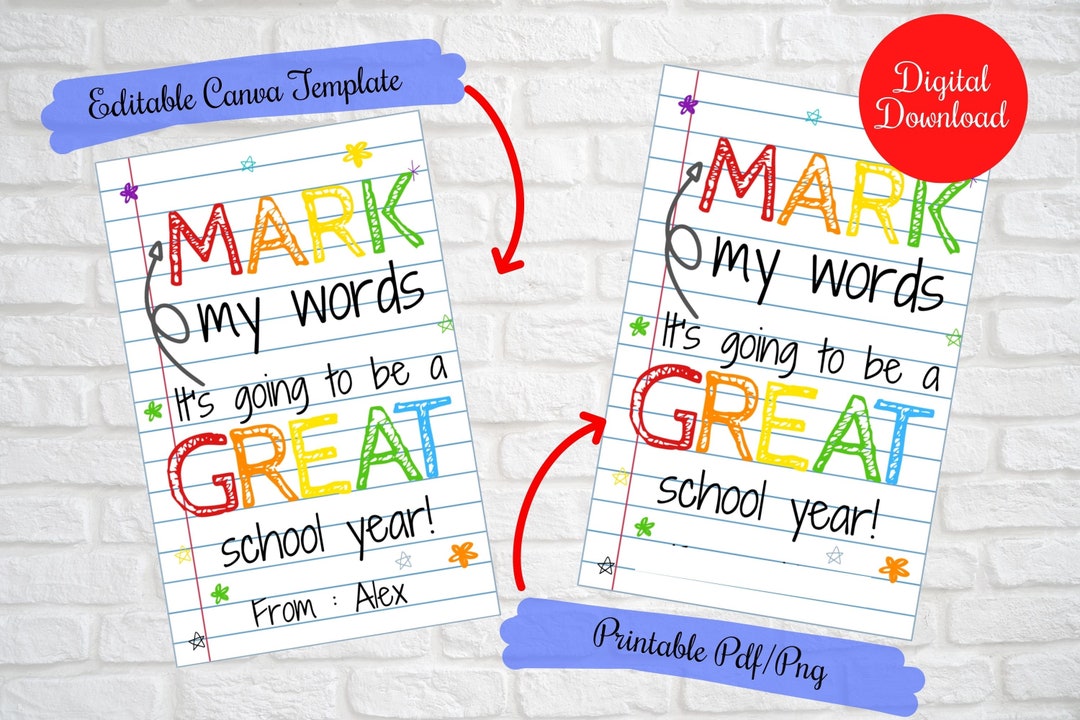 Editable Canva Template
MARK
my words
It's going to be a
GREAT
school year!
From : Alex
Digital
Download
MARK
my words
It's going to be a
GREAT
school year!
Printable Pdf/Png